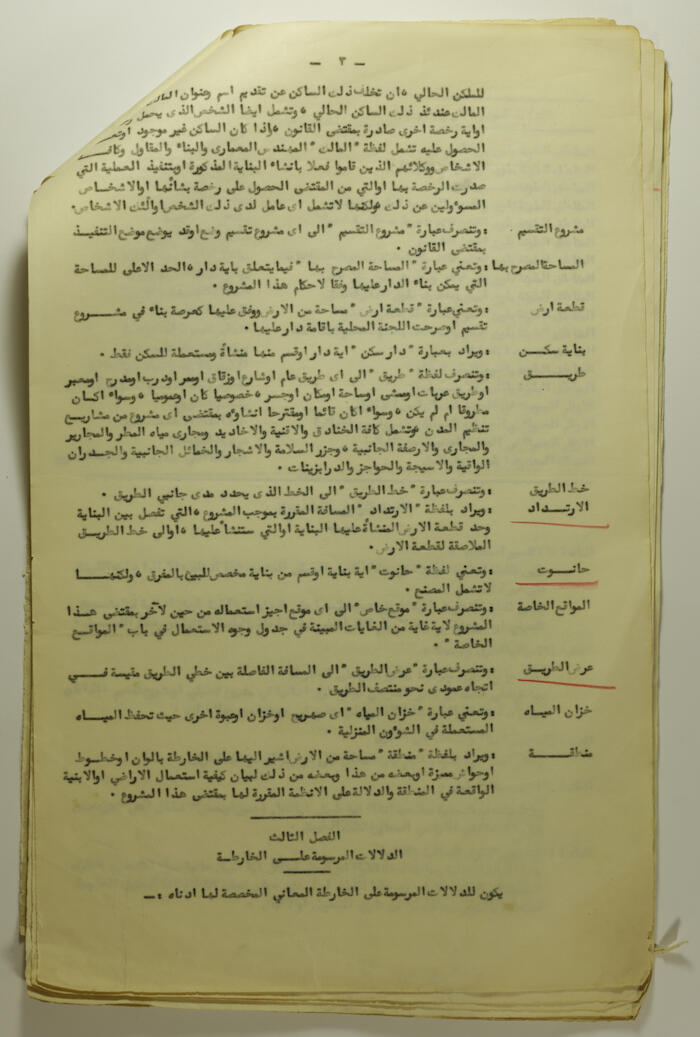 – ٣ –
للسكن الحالي ٥ ان تخلف ذلك الساكن عن تقديم اسم وعنوان المالك
المالك عندئذ ذلك الساكن الحالي ٥ وتشمل ايضا الشخص الذى يحمل
اواية رخصة اخرى صادرة بمقتضى القانون ٥ واذا كان الساكن غير موجود
الحصول عليه تشمل لفظة "المالك" المهندس المعمارى والبناء والمقاول
الاشخاص ووكلائهم الذين قاموا فعلا بانشاء البناية المذكورة اوبتنفيذ العملية التي
صدرت الرخصة بها اوالتي من المقتضى الحصول على رخصة بشأنها اوالاشخاص
المسؤولين عن ذلك ولكنها لا تشمل اى عامل لدى ذلك الشخص اوالئك الاشخاص.
مشروع التقسيم : وتنصرف عبارة "مشروع التقسيم" الى اى مشروع تقسيم وضع اوقد يوضع موضع التنفيذ
بمقتضى القانون .
المساحة المصرح بها : وتعني عبارة "المساحة المصرح بها" فيما يتعلق باية دار ٥ الحد الاعلى للمساحة
التي يمكن بناء الدار عليها وفقا لاحكام هذا المشروع .
قطعة ارض : وتعني عبارة "قطعة ارض" مساحة من الارض ووفق عليها كعرصة بناء في مشروع
تقسيم اوصرحت اللجنة المحلية باقامة دار عليها .
بناية سكن : ويراد بعبارة "دار سكن" اية دار اوقسم منها منشأة ومستعملة للسكن فقط .
طريق : وتنصرف لفظة "طريق" الى اى طريق عام اوشارع اوزقاق اوممر اودرب اومدرج اومعبر
اوطريق عربات اوممشى اوساحة اومكان اوجسر ٥ خصوصيا كان اوعموميا ٥ وسواء اكان
مطروقا ام لم يكن ٥ وسواء اكان قائما اومقترحا انشاوه بمقتضى اى مشروع من مشاريع
تنظيم المدن ٥ وتشمل كافة الخنادق والاقنية والاخاديد ومجارى مياه المطر والمجارير
والمجارى والارصفة الجانبية ٥ وجزر السلامة والاشجار والخمائل الجانبية والجدران
الواقية والاسيجة والحواجز والدرابزينات .
خط الطريق : وتنصرف عبارة "خط الطريق" الى الخط الذى يحدد مدى جانبي الطريق .
الارتداد : ويراد بلفظة "الارتداد" المسافة المقررة بموجب المشروع ٥ التي تفصل بين البناية
وحد قطعة الارض المنشأة عليها البناية اوالتي ستنشأ عليها ٥ اوالى خط الطريق
الملاصقة لقطعة الارض.
حانوت : وتعني لفظة "حانوت" اية بناية اوقسم من بناية مخصص للبيع بالمفرق ٥ ولكنها
لا تشمل المصنع .
المواقع الخاصة : وتنصرف عبارة "موقع خاص" الى اى موقع اجيز استعماله من حين لآخر بمقتضى هذا
المشروع لاية غاية من الغايات المبينة في جدول وجوه الاستعمال في باب "المواقع
الخاصة" .
عرض الطريق : وتنصرف عبارة "عرض الطريق" الى المسافة الفاصلة بين خطي الطريق مقيسة في
اتجاه عمودى نحو منتصف الطريق .
خزان المياه : وتعني عبارة "خزان المياه" اى صهريج اوخزان اوعبوة اخرى حيث تحفظ المياه
المستعملة في الشؤون المنزلية .
منطقة : ويراد بلفظة "منطقة" مساحة من الارض اشير اليها على الخارطة بالوان اوخطوط
اوحواش مميزة اوبعضه من هذا وبعضه من ذلك لبيان كيفية استعمال الاراضي اوالابنية
الواقعة في المنطقة والدلالة على الانظمة المقررة لها بمقتضى هذا المشروع .
الفصل الثالث
الدلالات المرسومة على الخارطة
يكون للدلالات المرسومة على الخارطة المعاني المخصصة لها ادناه :–